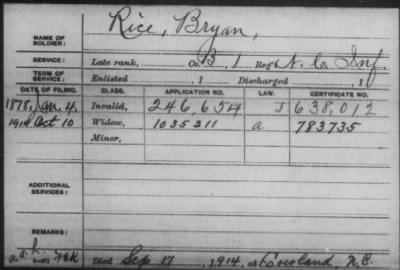 NAME OF SOLDIER: Rice, Bryan,
SERVICE: Late rank, Co. B, 1 Reg't N. Ca. Inf.
TERM OF SERVICE: Enlisted , 1 Discharged , 1
DATE OF FILING. CLASS. APPLICATION NO. LAW. CERTIFICATE NO.
1878, Jan. 4. Invalid, 246,654 J 638,012
1914 Oct 10 Widow, 1035311 a 783735
Minor,
ADDITIONAL SERVICES:
REMARKS:
Died Sep 17, 1914, at Loveland, N.C.